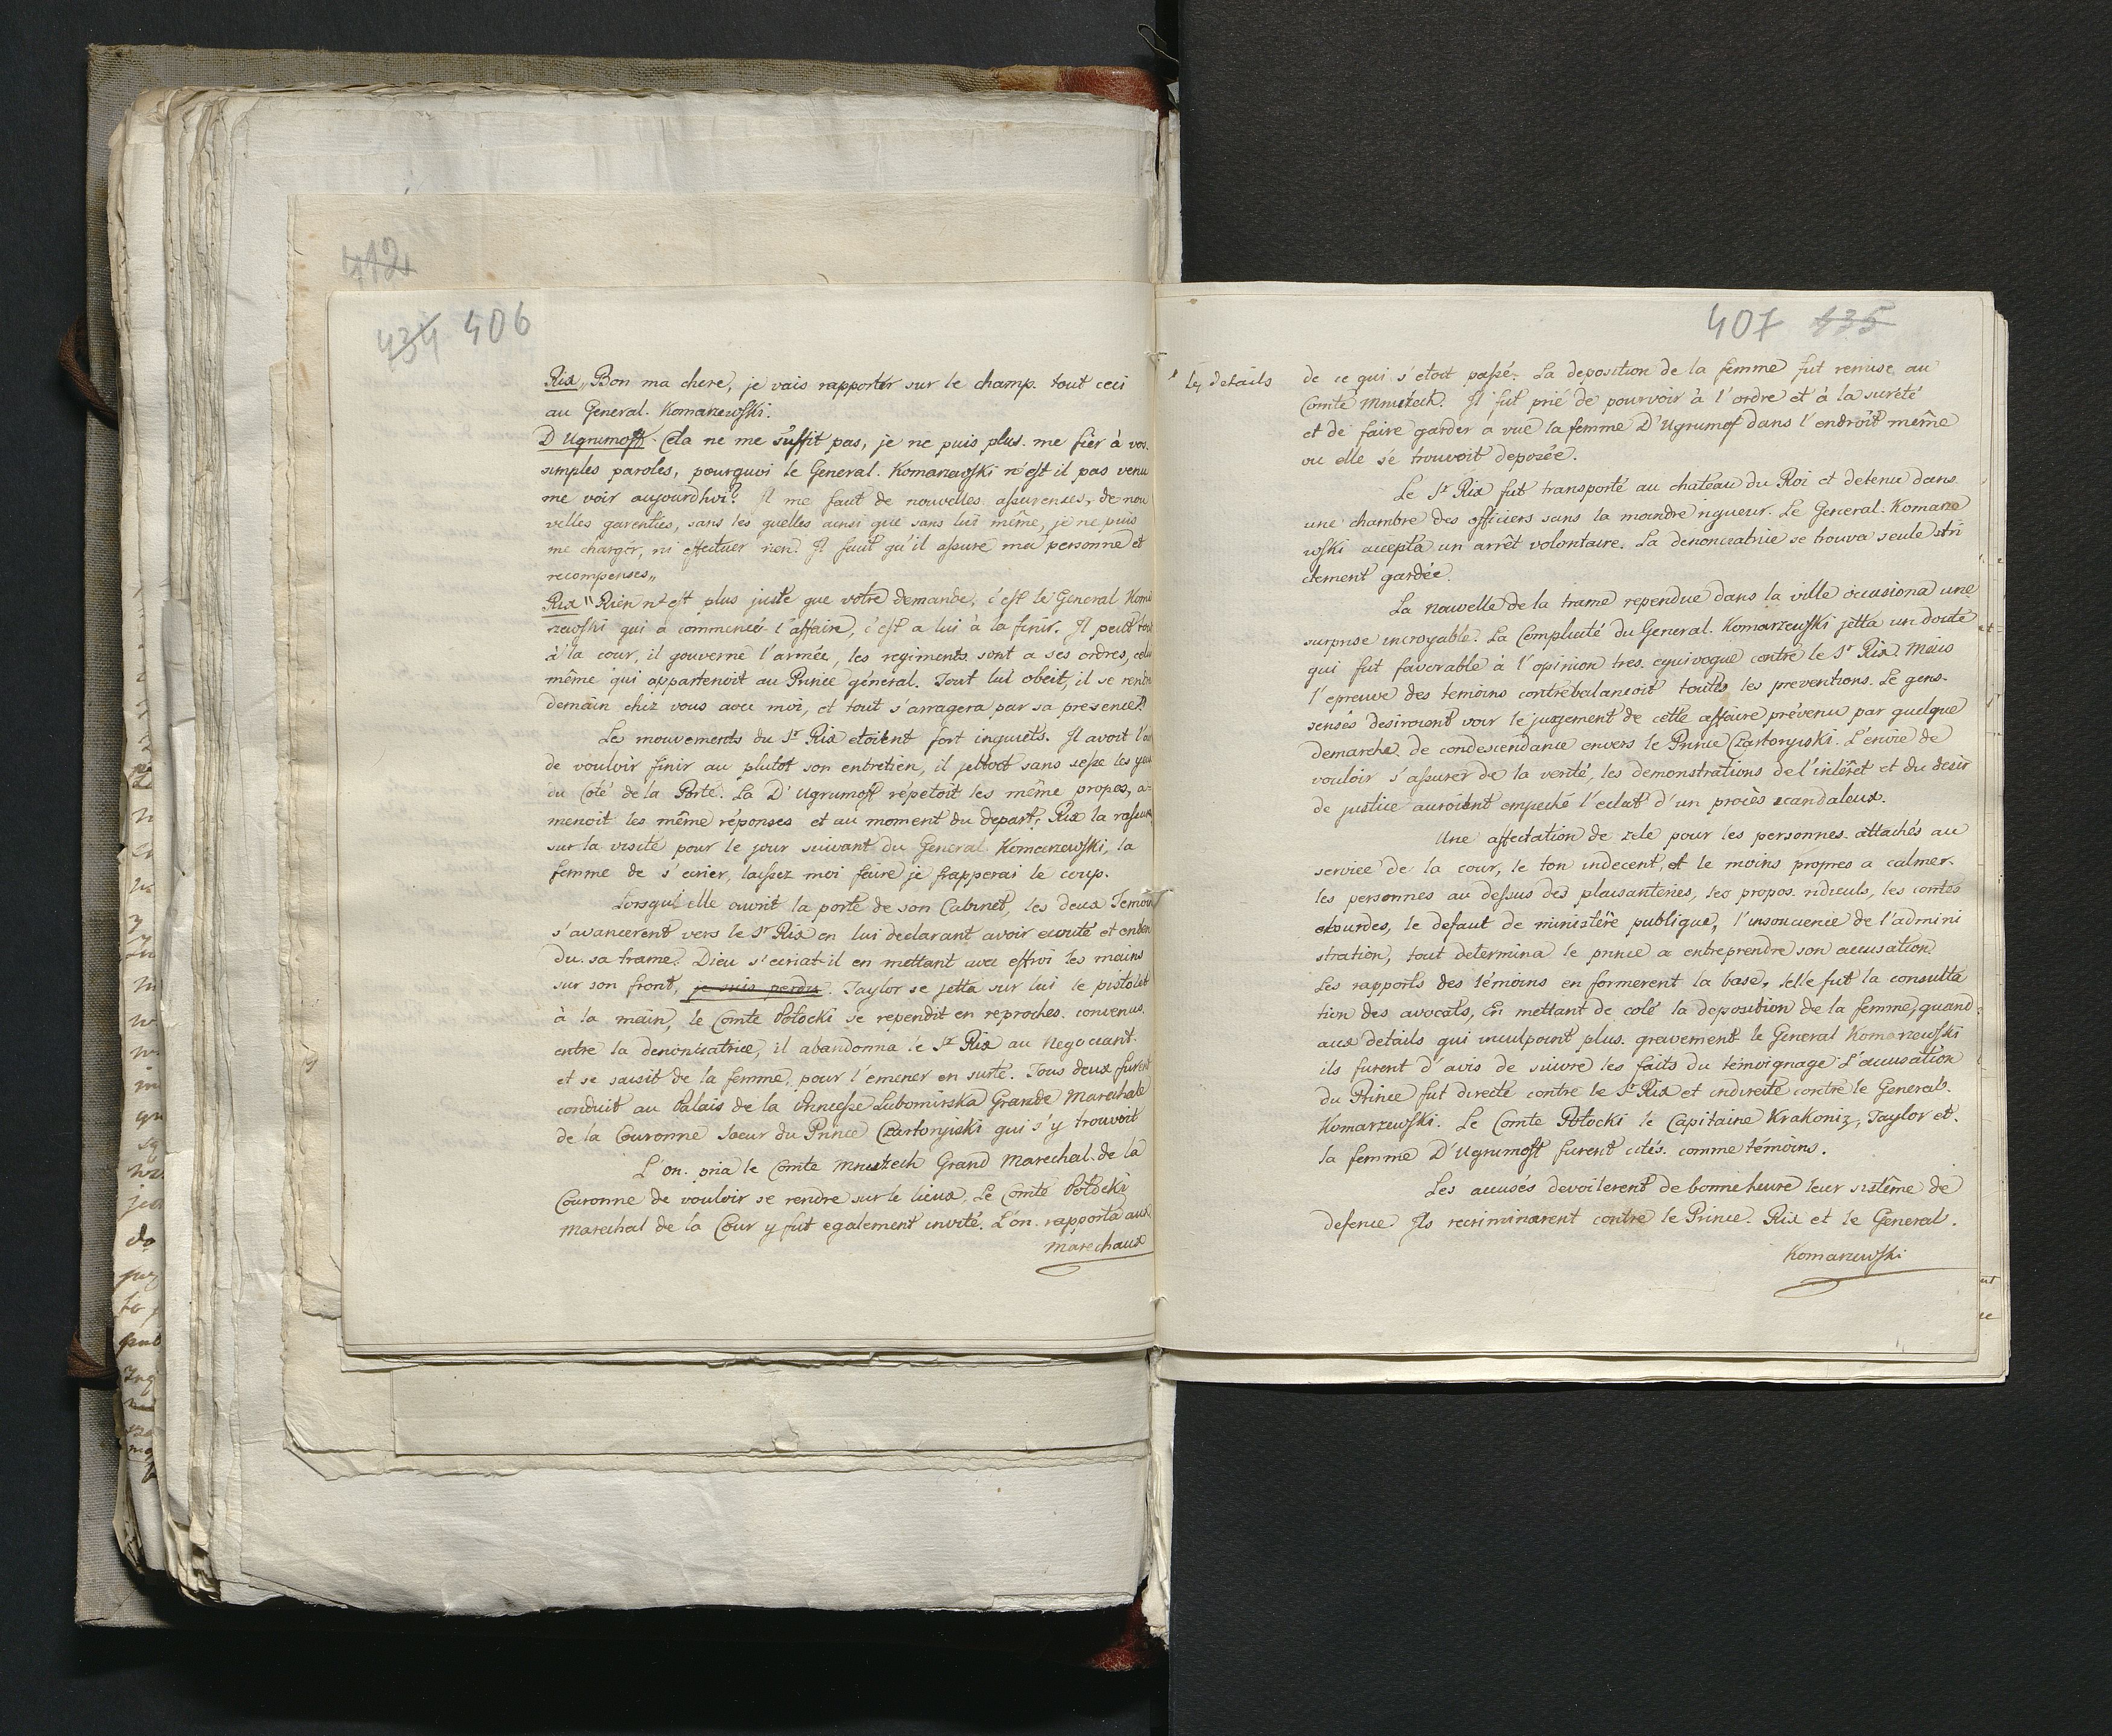 412
434 406
Rix „Bon ma chere, je vais rapporter sur le champ tout ceci
au General Komarzewski.
D'Ugrumoff. Cela ne me suffit pas, je ne puis plus me fier à vos
simples paroles, pourquoi le General Komarzewski n'est il pas venu
me voir aujourdhui? Il me faut de nouvelles assurences, de nou
velles garenties, sans les quelles ainsi que sans lui même, je ne puis
me charger, ni effectuer rien. Il faut qu'il assure ma personne et
recompenses„
Rix "Rien n'est plus juste que votre demande, c'est le General Koma
rzewski qui a commencé l'affaire, c'est a lui à la finir. Il peut tout
à la cour, il gouverne l'armée, les regiments sont a ses ordres, celui
même qui appartenoit au Prince général. Tout lui obeit, il se rendra
demain chez vous avec moi, et tout s'arragera par sa presence."
Les mouvements du Sr Rix etoient fort inquiets. Il avoit l'air
de vouloir finir au plutot son entretien, il jettoit sans sesse les yeux
du coté de la Porte. La D'Ugrumoff répetoit les même propos, a-
menoit les même réponses et au moment du depart, Rix la rassura
sur la visite pour le jour suivant du General Komarzewski, la
femme de s'écrier, laissez moi faire je frapperai le coup.
Lorsqu'elle ouvrit la porte de son Cabinet, les deux Temoins
s'avancerent vers le Sr Rix en lui declarant avoir ecouté et enten
du sa trame. Dieu s'ecriat-il en mettant avec effroi les mains
sur son front, je suis perdu. Taylor se jetta sur lui le pistolet
à la main, le Comte Potocki se rependit en reproches convenus
entre la denonciatrice, il abandonna le Sr Rix au Negociant
et se saisit de la femme, pour l'emener en surte. Tous deux furent
conduit au Palais de la Princesse Lubomirska Grande Marechale
de la Couronne soeur du Prince Czartoryiski qui s'y trouvoit
L'on pria le Comte Mniszech Grand Marechal de la
Couronne de vouloir se rendre sur le lieux. Le Comte Potocki
Marechal de la Cour y fut egalement invité. L'on rapporta aux
Marechaux
407 435
les details
de ce qui s'etoit passé. La deposition de la femme fut remise au
Comte Mniszech. Il fut prié de pourvoir à l'ordre et à la sureté
et de faire garder a vue la femme D'Ugrumof dans l'endroit même
ou elle se trouvoit deposée.
Le Sr Rix fut transporté au chateau du Roi et detenu dans
une chambre des officiers sans la moindre rigueur. Le General Komarz
ewski accepta un arrêt volontaire. La denonciatrice se trouva seule stri
ctement gardée.
La nouvelle de la trame rependue dans la ville occasiona une
surprise incroyable. La Complicité du General Komarzewski jetta un doute
qui fut favorable à l'opinion tres equivoque contre le Sr Rix. Mais
l'epreuve des temoins contrebalancoit toutes les preventions. Le gens
sensés desiroient voir le jugement de cette affaire prévenu par quelque
demarche de condescendance envers le Prince Czartoryiski. L'envie de
vouloir s'assurer de la verité, les demonstrations de l'intérêt et du desir
de justice auroient empeché l'eclat d'un procès scandaleux.
Une affectation de zele pour les personnes attachés au
service de la cour, le ton indecent, et le moins propres a calmer
les personnes au dessus des plaisanteries, les propos ridiculs, les contes
absourdes, le defaut de ministère publique, l'insoucience de l'admini
stration, tout determina le prince a entreprendre son accusation
Les rapports des témoins en formerent la base, telle fut la consulta
tion des avocats, En mettant de coté la deposition de la femme, quand
aux details qui inculpoint plus gravement le General Komarzewski
ils furent d'avis de suivre les faits du témoignage. L'accusation
du Prince fut directe contre le Sr Rix et indirecte contre le General
Komarzewski. Le Comte Potocki le Capitaine Krakoniz, Taylor et
la femme D'Ugrumoff furent cités comme témoins.
Les accusés devoilerent de bonne heure leur sistême de
defence Ils recriminarent contre le Prince. Rix et le General
Komarzewski